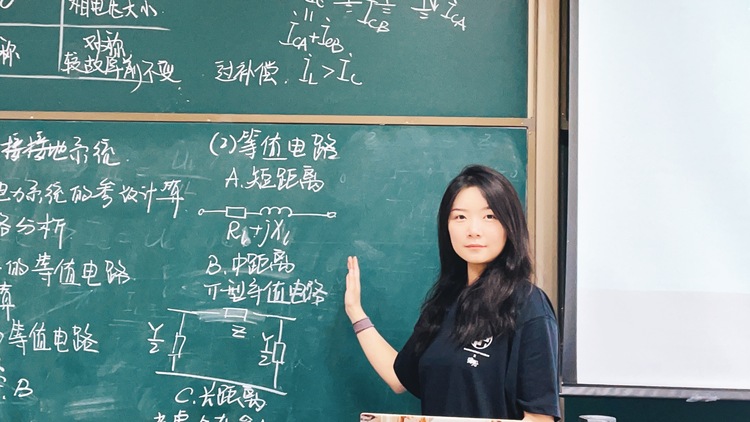 相电压大小
İCB
İCA
İCA+İCB
称
对称
较故障前不变
过补偿. İL>İC
接接地系统.
电力系统的参数计算
路分析
的等值电路
算
等值电路
.B
(2)等值电路
A.短距离
RL+jXL
B.中距离
π型等值电路
Y/2
Z
Y/2
C.长距离